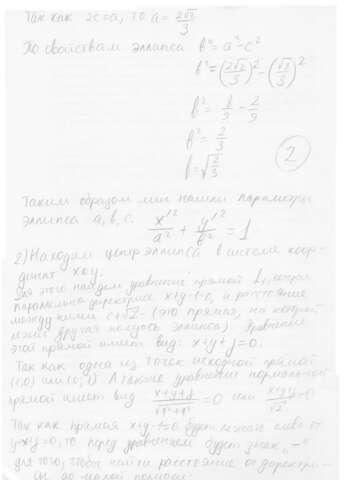 Так как 2c=a, то a = 2√2/3
По свойствам эллипса b²=a²-c²
b²=(2√2/3)²-(√2/3)²
b²=8/9-2/9
b²=2/3
b=√2/3
2
Таким образом мы нашли параметры
эллипса a, b, c. x'²/a²+y'²/b²=1
2) Находим центр эллипса в системе коор-
динат xoy.
Для этого найдем уравнение прямой L₁,
параллельна директрисе x+y-1=0, и расстояние
между ними (это прямая, на которой
лежит другая полуось эллипса). Уравнение
этой прямой имеет вид: x+y+J=0.
Так как одна из точек искомой прямой
(1;0) или (0;1). А также уравнение нормальной
прямой имеет вид x+y+J/√1²+1²=0 или =0
Так как прямая x+y-1=0 будет лежать слева от
=0, то перед уравнением будет знак "-"
для того, чтобы найти расстояние от директри-
до малой полуоси.